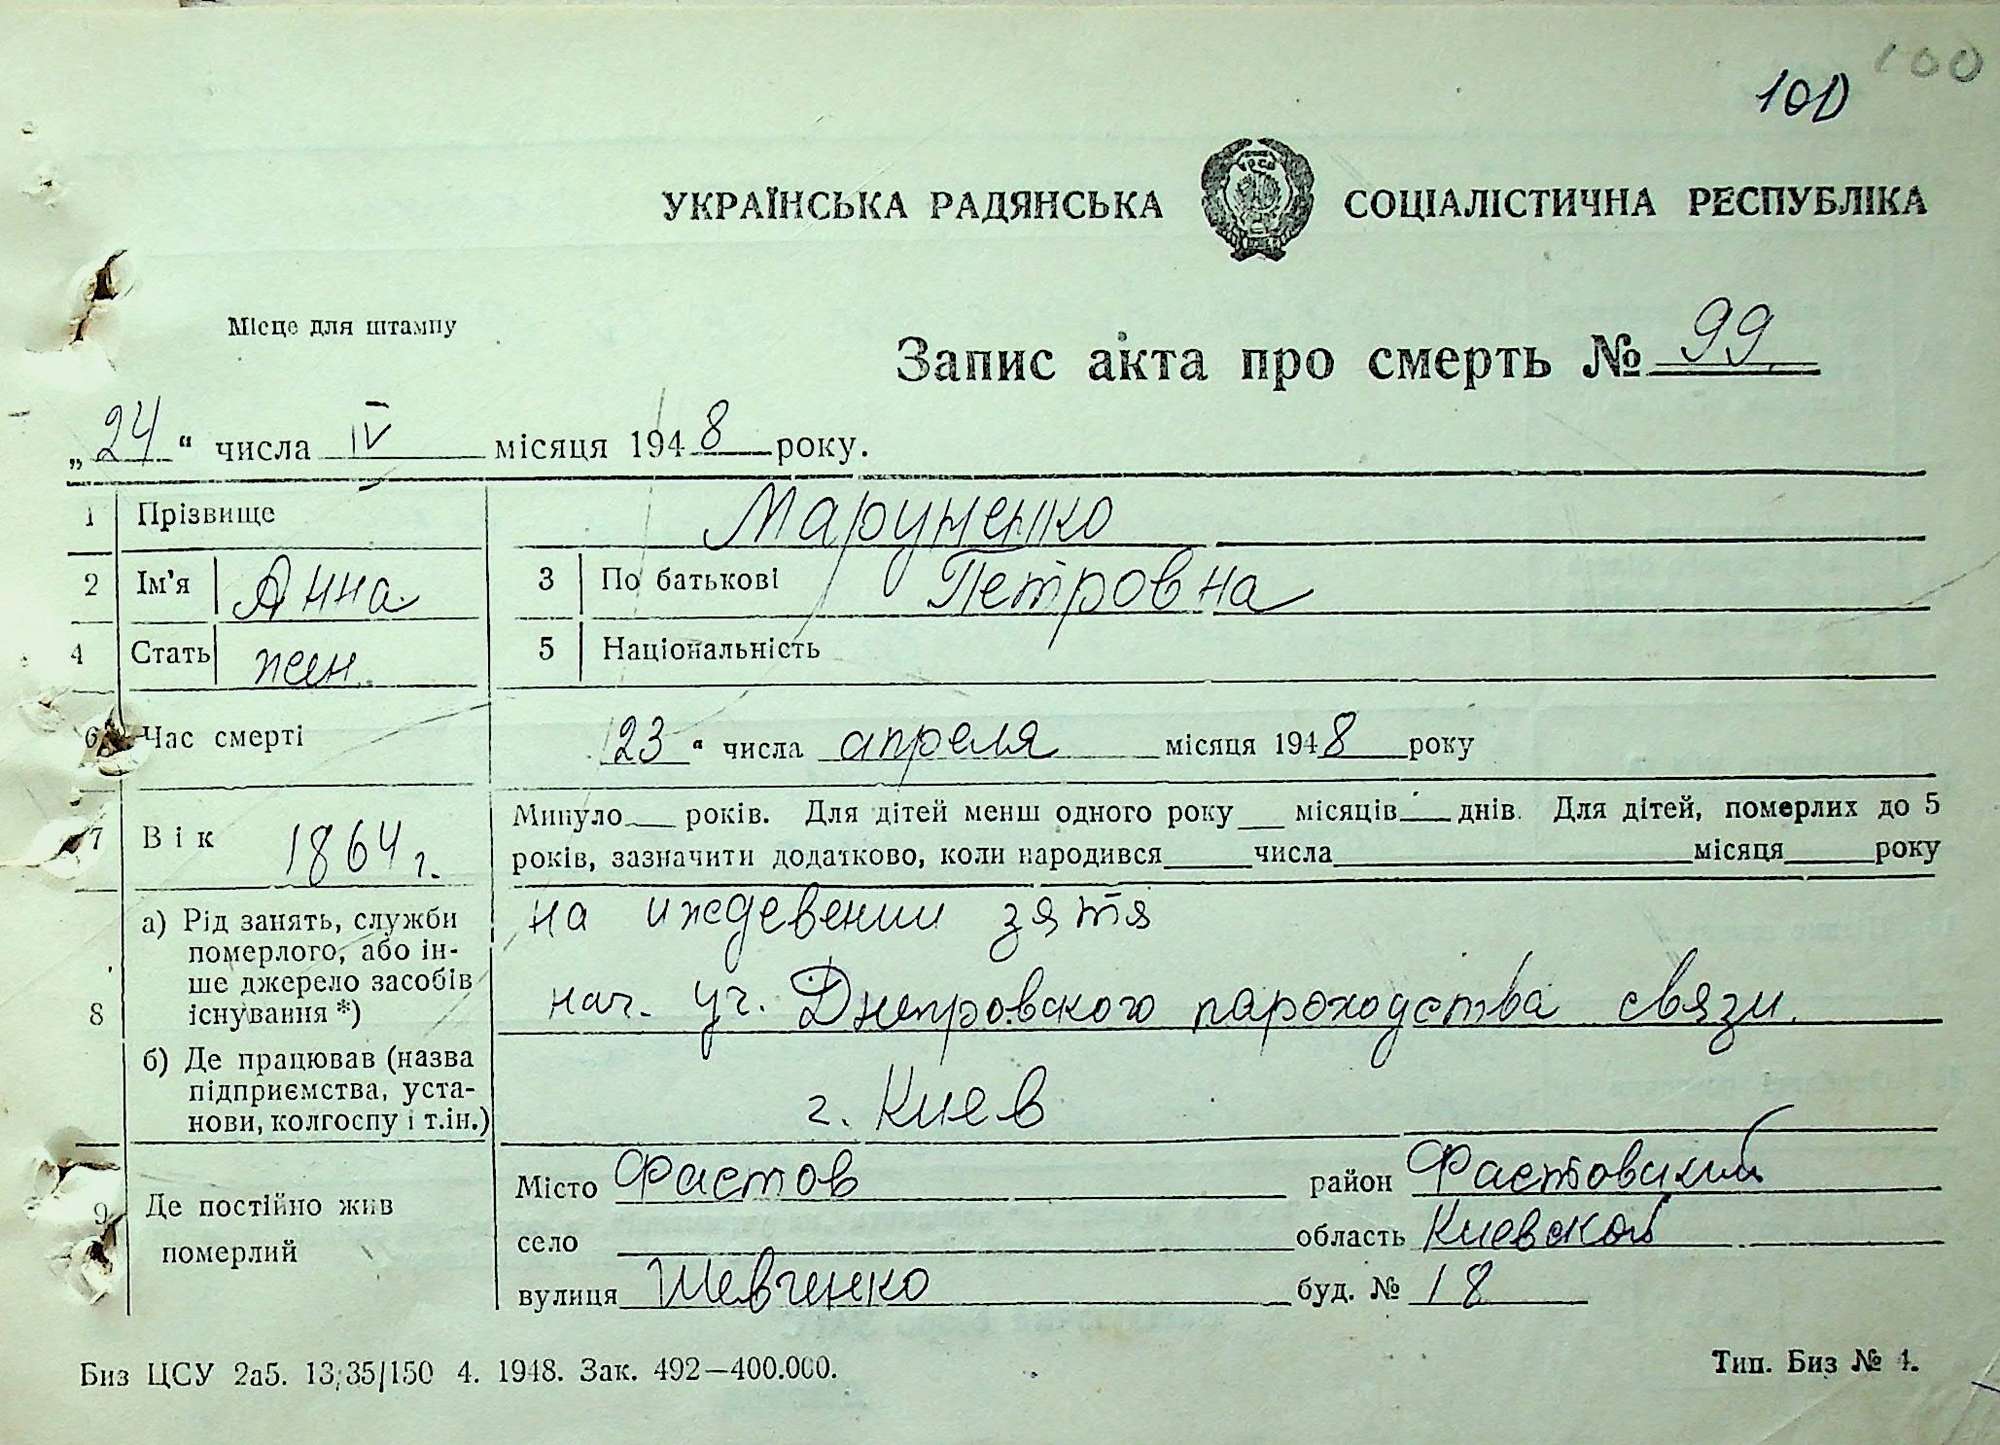 100
100
УКРАЇНСЬКА РАДЯНСЬКА СОЦІАЛІСТИЧНА РЕСПУБЛІКА
Місце для штампу
Запис акта про смерть № 99
„24“ числа IV місяця 1948 року.
1 Прізвище Маруненко
2 Ім'я Анна 3 По батькові Петровна
4 Стать жен. 5 Національність
6 Час смерті 23 “ числа апреля місяця 1948 року
7 Вік 1864 г. Минуло___ років. Для дітей менш одного року___ місяців___ днів. Для дітей, померлих до 5
років, зазначити додатково, коли народився_____числа_____місяця_____року
8 а) Рід занять, служби померлого, або ін-
ше джерело засобів
існування *)
на иждевении зятя
нач. уч. Днепровского пароходства связи.
б) Де працював (назва
підприємства, уста-
нови, колгоспу і т.ін.)
г. Киев
9 Де постійно жив
померлий
Місто Фастов район Фастовский
село область Киевской
вулиця Шевченко буд. № 18
Биз ЦСУ 2а5. 13/35/150 4. 1948. Зак. 492—400.000. Тип. Биз № 4.